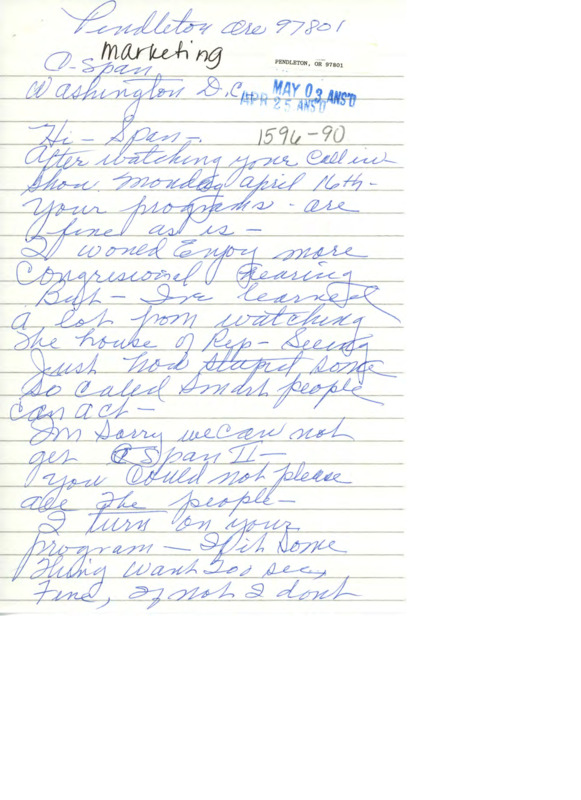 Pendleton Ore 97801
marketing
PENDLETON, OR 97801
C-Span
Washington D.C.
MAY 03 ANS'D
APR 25 ANS'D
Hi - Span -
1596-90
After watching your Call in
Show Monday april 16th -
Your programs - are
fine as is -
I would Enjoy more
Congrisional Hearing
But - I've learned
a lot from watching
The house of Rep - Seeing
Just how stupid some
So Called Smart people
Can act -
I'm Sorry we can not
get C Span II -
You Could not please
all the people -
I turn on your
program - If it Some
Thing want too see,
Fine, If not I dont